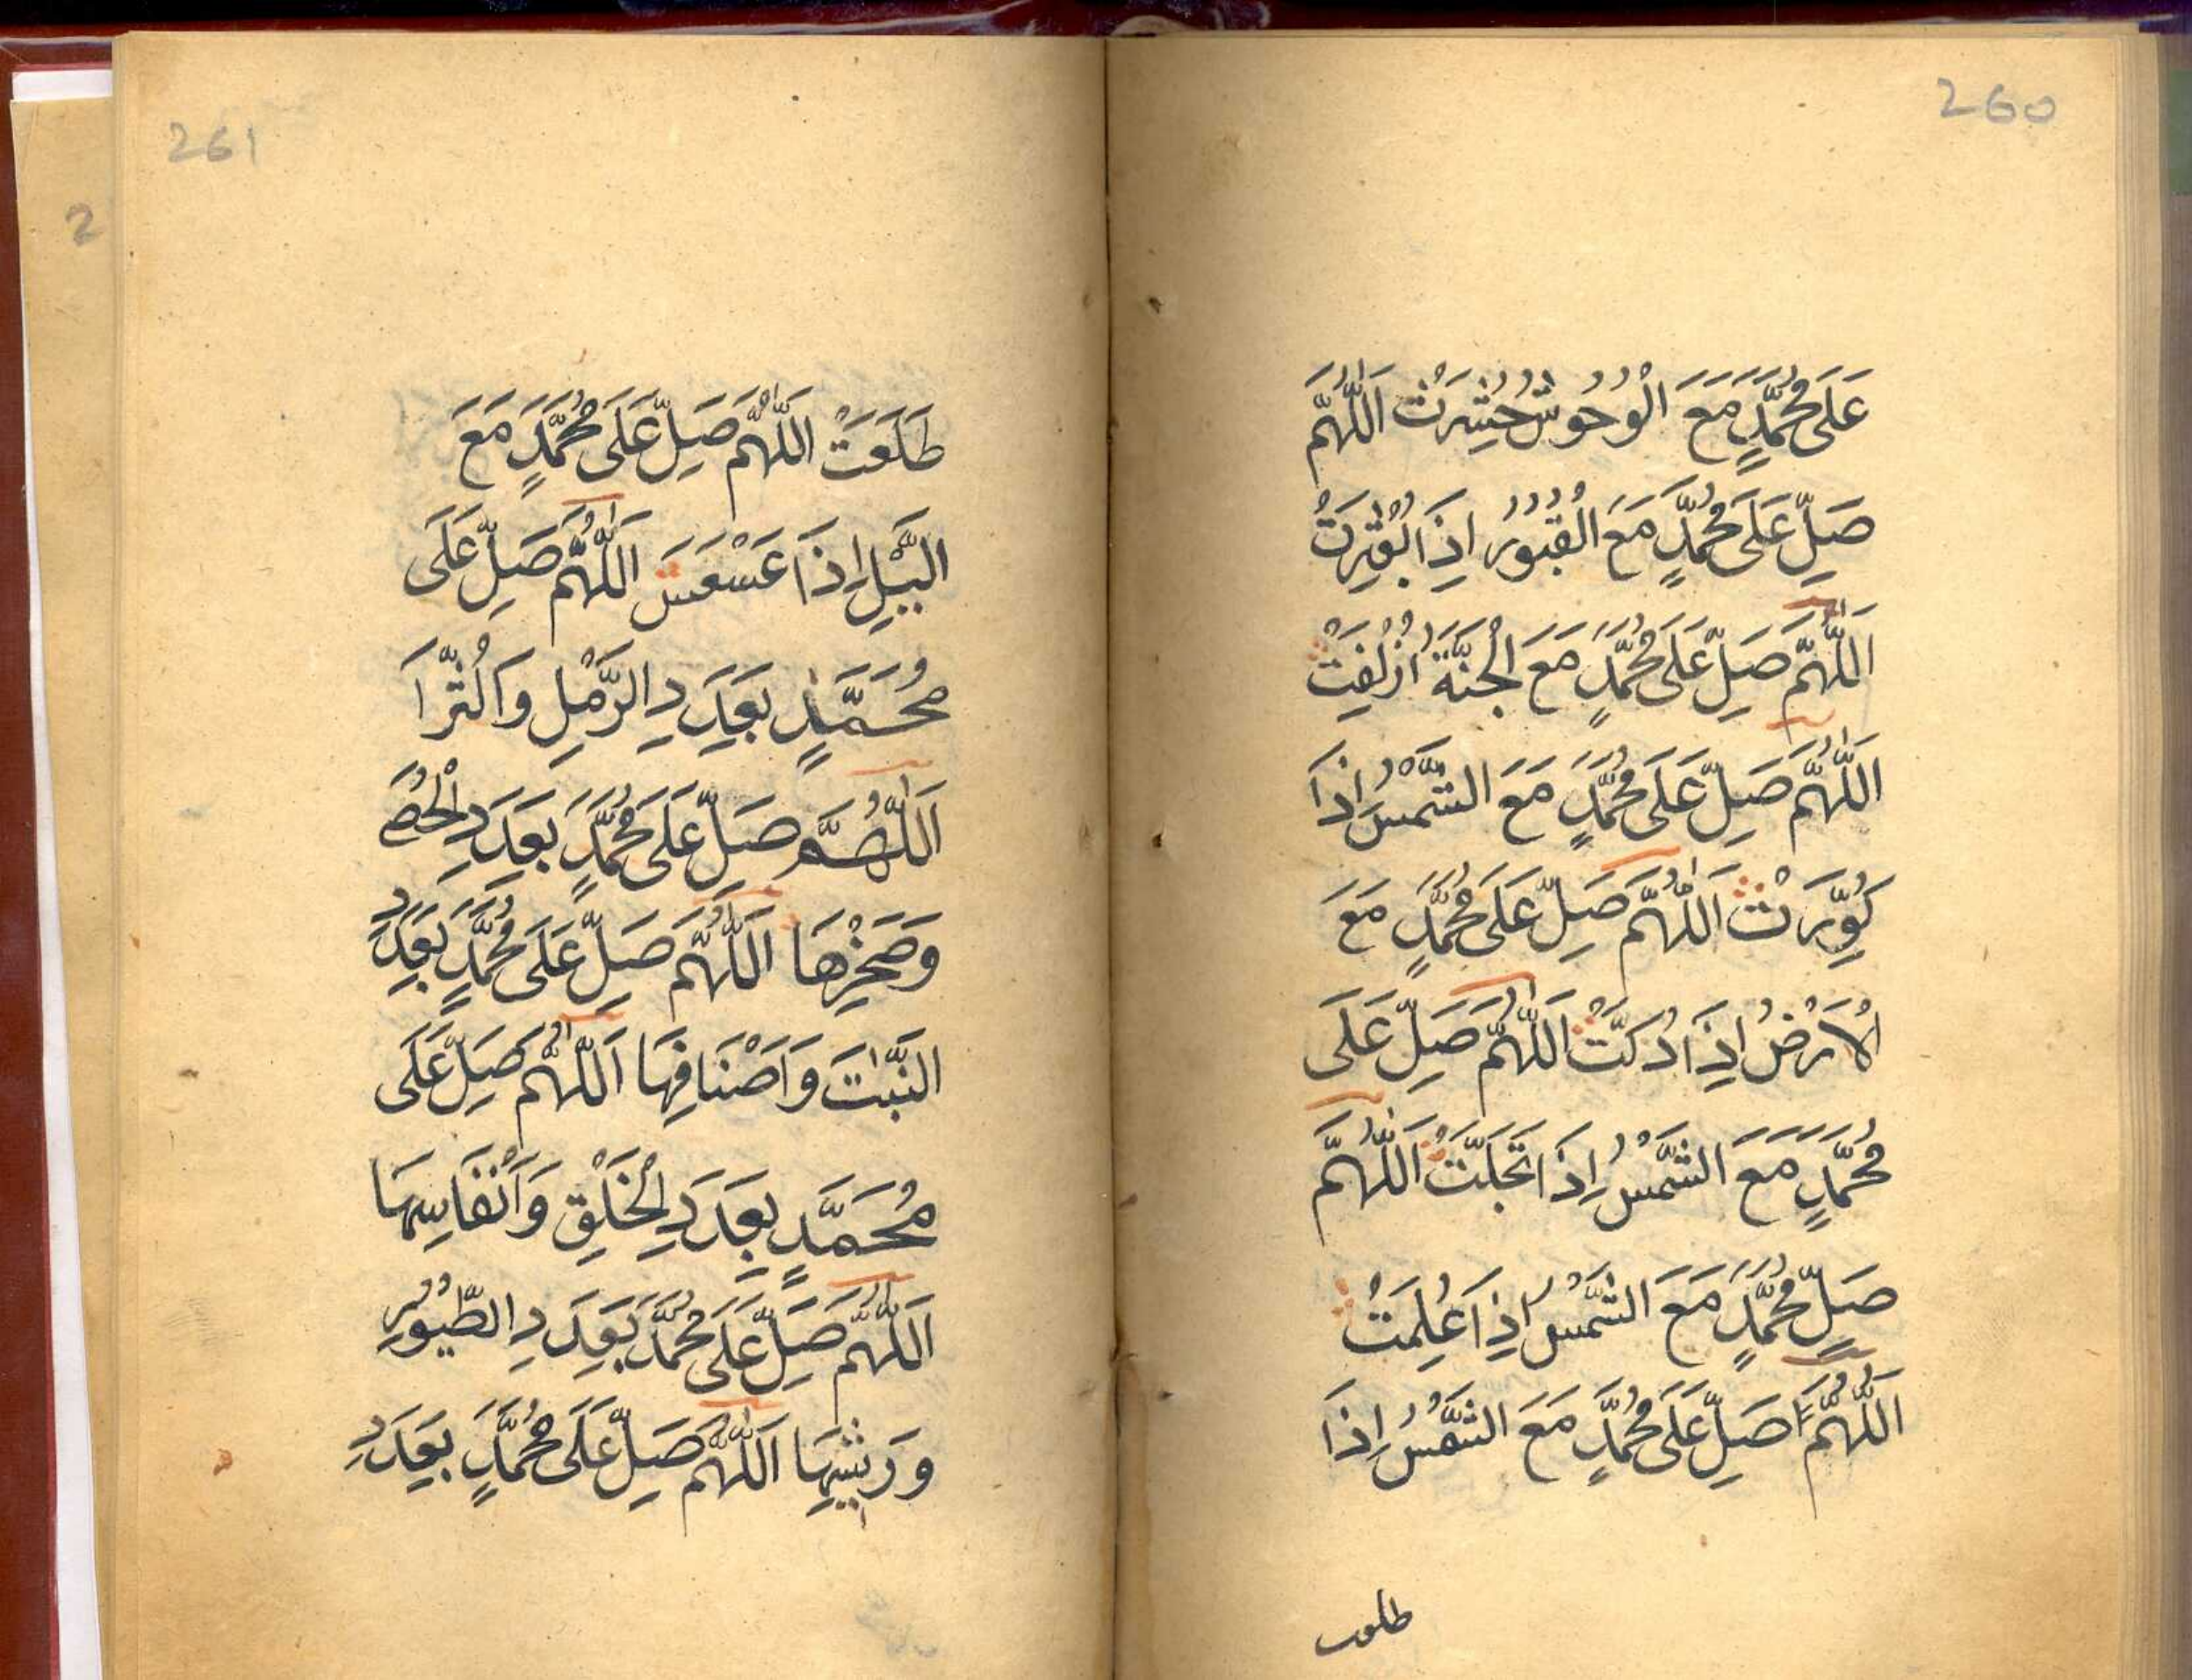 260
عَلَى مُحَمَّدٍ مَعَ الْوُحُوشُ حُشِرَتْ اَللّٰهُمَّ
صَلِّ عَلَى مُحَمَّدٍ مَعَ الْقُبُوْرُ اِذَا بُعْثِرَتْ
اَللّٰهُمَّ صَلِّ عَلَى مُحَمَّدٍ مَعَ الْجَنَّةُ اُزْلِفَتْ
اَللّٰهُمَّ صَلِّ عَلَى مُحَمَّدٍ مَعَ الشَّمْسُ اِذَا
كُوِّرَتْ اَللّٰهُمَّ صَلِّ عَلَى مُحَمَّدٍ مَعَ
الْاَرْضُ اِذَا دُكَّتْ اَللّٰهُمَّ صَلِّ عَلَى
مُحَمَّدٍ مَعَ الشَّمْسُ اِذَا تَجَلَّتْ اَللّٰهُمَّ
صَلِّ مُحَمَّدٍ مَعَ الشَّمْسُ اِذَا عُلِمَتْ
اَللّٰهُمَّ صَلِّ عَلَى مُحَمَّدٍ مَعَ الشَّمْسُ اِذَا
طلعت
261
طَلَعَتْ اَللّٰهُمَّ صَلِّ عَلَى مُحَمَّدٍ مَعَ
الَّيْلِ اِذَا عَسْعَسَ اَللّٰهُمَّ صَلِّ عَلَى
مُحَمَّدٍ بِعَدَدِ الرَّمْلِ وَالثَّرَا
اَللّٰهُمَّ صَلِّ عَلَى مُحَمَّدٍ بِعَدَدِ الْحَصٰى
وَصَخْرِهَا اَللّٰهُمَّ صَلِّ عَلَى مُحَمَّدٍ بِعَدَدِ
النَّبٰتَ وَاَصْنَافِهَا اَللّٰهُمَّ صَلِّ عَلَى
مُحَمَّدٍ بِعَدَدِ الْخَلْقِ وَاَنْفَاسِهَا
اَللّٰهُمَّ صَلِّ عَلَى مُحَمَّدٍ بِعَدَدِ الطُّيُوْرِ
وَرِيْشِهَا اَللّٰهُمَّ صَلِّ عَلَى مُحَمَّدٍ بِعَدَدِ
2